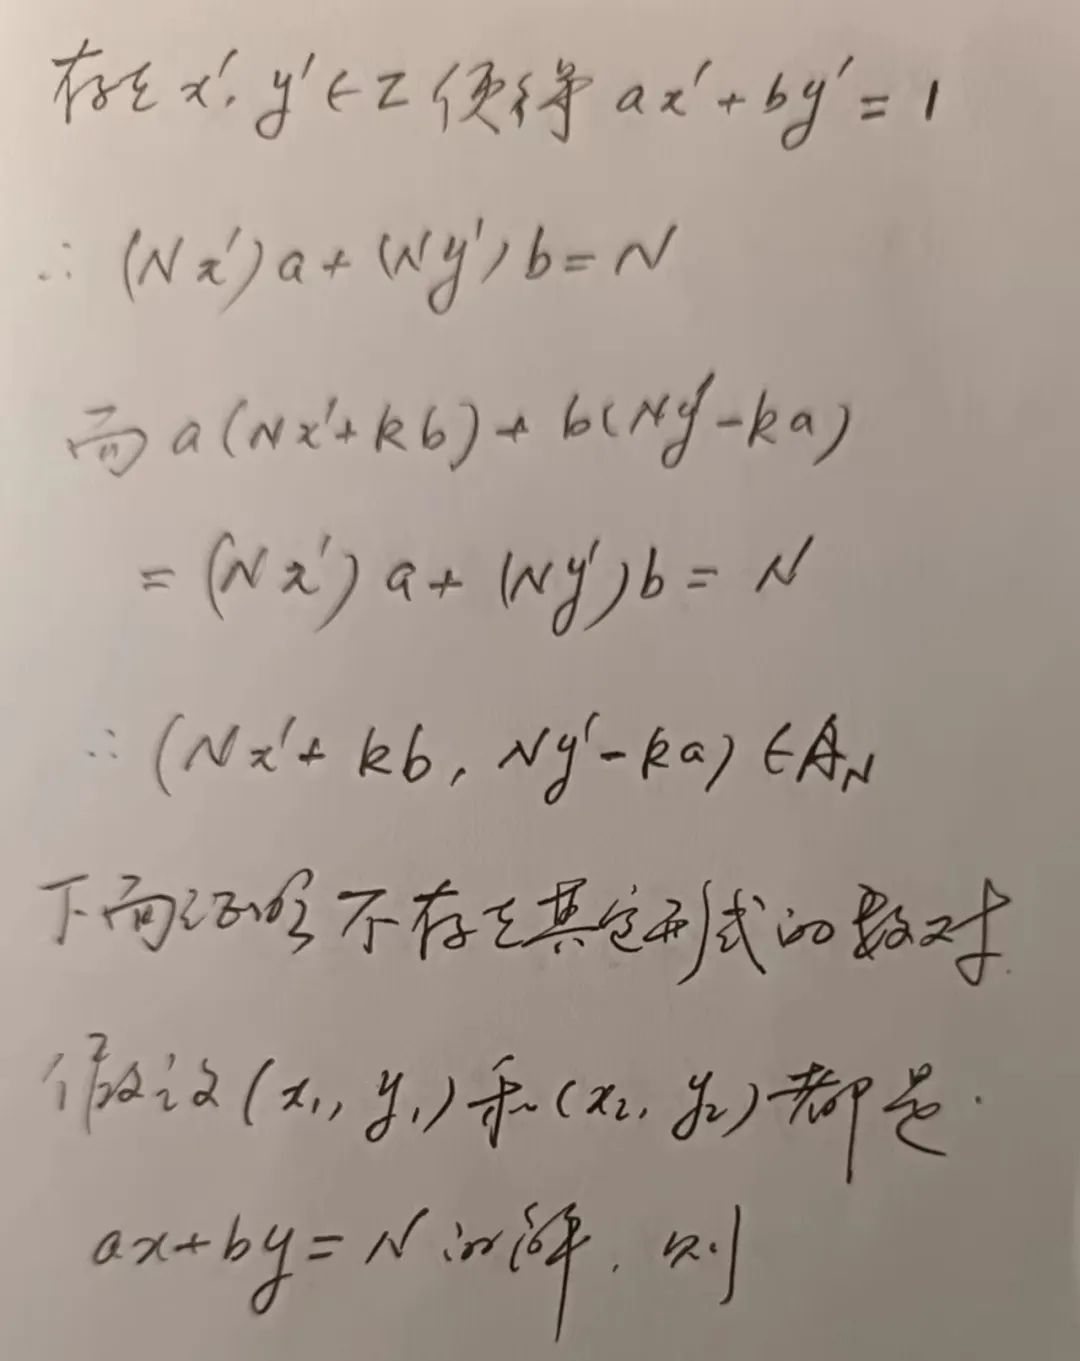 存在 x', y' ∈ Z 使得 ax' + by' = 1
∴ (Nx')a + (Ny')b = N
而 a(Nx'+kb) + b(Ny'-ka)
= (Nx')a + (Ny')b = N
∴ (Nx'+kb, Ny'-ka) ∈ A_N
下面证明不存在其它形式的数对.
假设 (x₁, y₁) 和 (x₂, y₂) 都是
ax+by=N 的解, 则